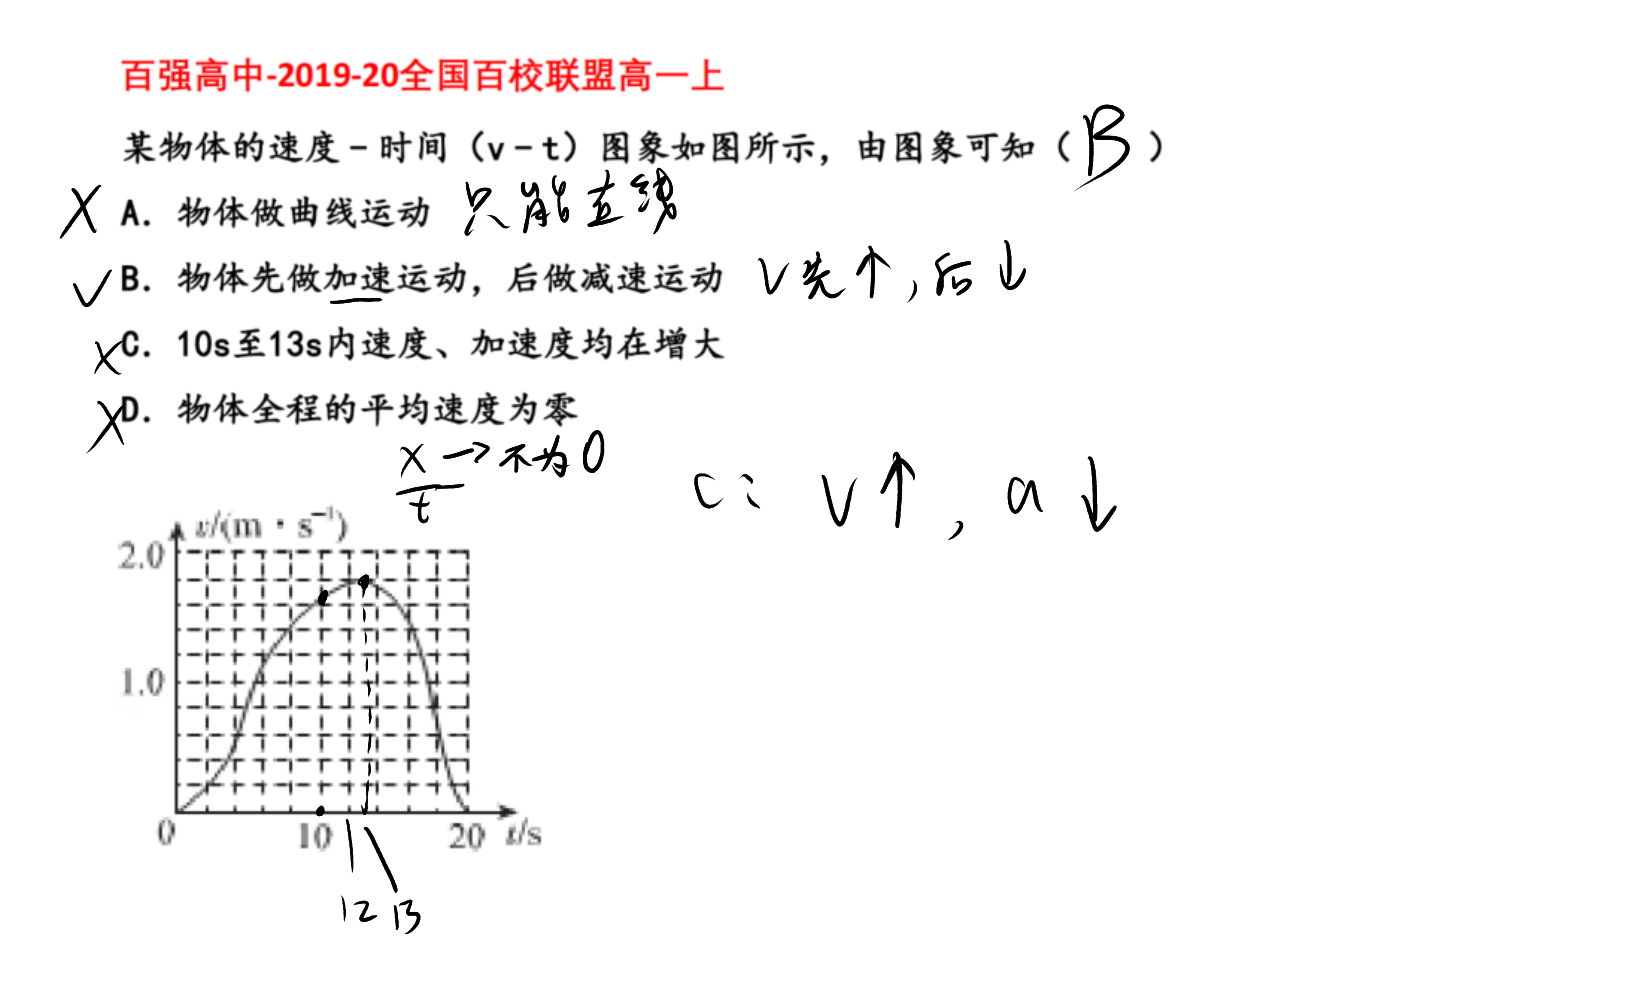 百强高中-2019-20全国百校联盟高一上
某物体的速度-时间（v-t）图象如图所示，由图象可知（B）
X A. 物体做曲线运动 只能直线
✓ B. 物体先做加速运动，后做减速运动 V先↑，后↓
X C. 10s至13s内速度、加速度均在增大
X D. 物体全程的平均速度为零
x/t → 不为0
C: V↑, a↓
v/(m·s⁻¹)
2.0
1.0
0 10 20 t/s
12 13